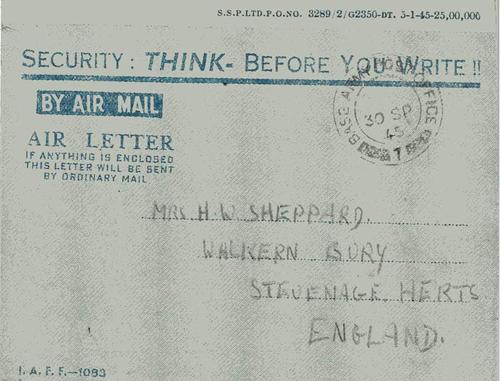 S.S.P.LTD.P.O.NO. 3289/2/G2350-DT. 5-1-45-25,00,000
SECURITY: THINK- BEFORE YOU WRITE !!
BY AIR MAIL
AIR LETTER
IF ANYTHING IS ENCLOSED
THIS LETTER WILL BE SENT
BY ORDINARY MAIL
BASE ARMY POST OFFICE
30 SP
45
7
MRS H.W. SHEPPARD.
WALKERN BURY
STEVENAGE. HERTS
ENGLAND.
I. A. F. F.-1093